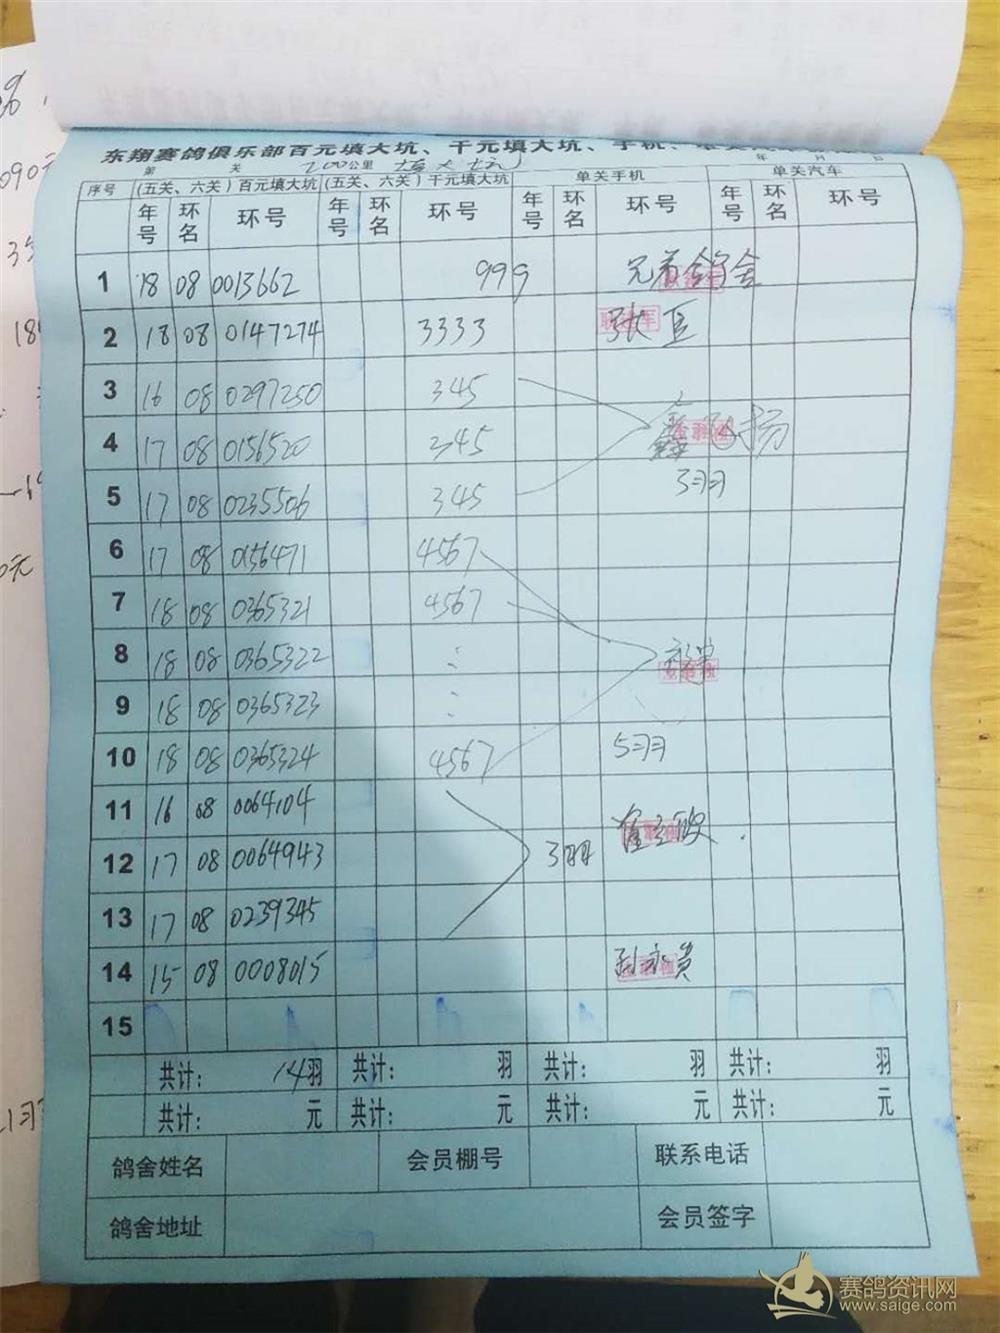 东翔赛鸽俱乐部百元填大坑、千元填大坑、手机、单关
第 关 200公里 填大坑 年 月 日
序号 (五关、六关)百元填大坑 (五关、六关)千元填大坑 单关手机 单关汽车
年号 环名 环号 年号 环名 环号 年号 环名 环号 年号 环名 环号
1 18 08 0013662 999 兄弟鸽舍
2 18 08 0147274 3333
3 16 08 0297250 345
4 17 08 0156520 345 鑫飞扬
5 17 08 0235506 345 3羽
6 17 08 0156471 4567
7 18 08 0365321 4567
8 18 08 0365322
9 18 08 0365323
10 18 08 0365324 4567 5羽
11 16 08 0064104
12 17 08 0064943 3羽
13 17 08 0239345
14 15 08 0008015 孙永贵
15
共计: 14羽 共计: 羽 共计: 羽 共计: 羽
共计: 元 共计: 元 共计: 元 共计: 元
鸽舍姓名 会员棚号 联系电话
鸽舍地址 会员签字
赛鸽资讯网
www.saige.com